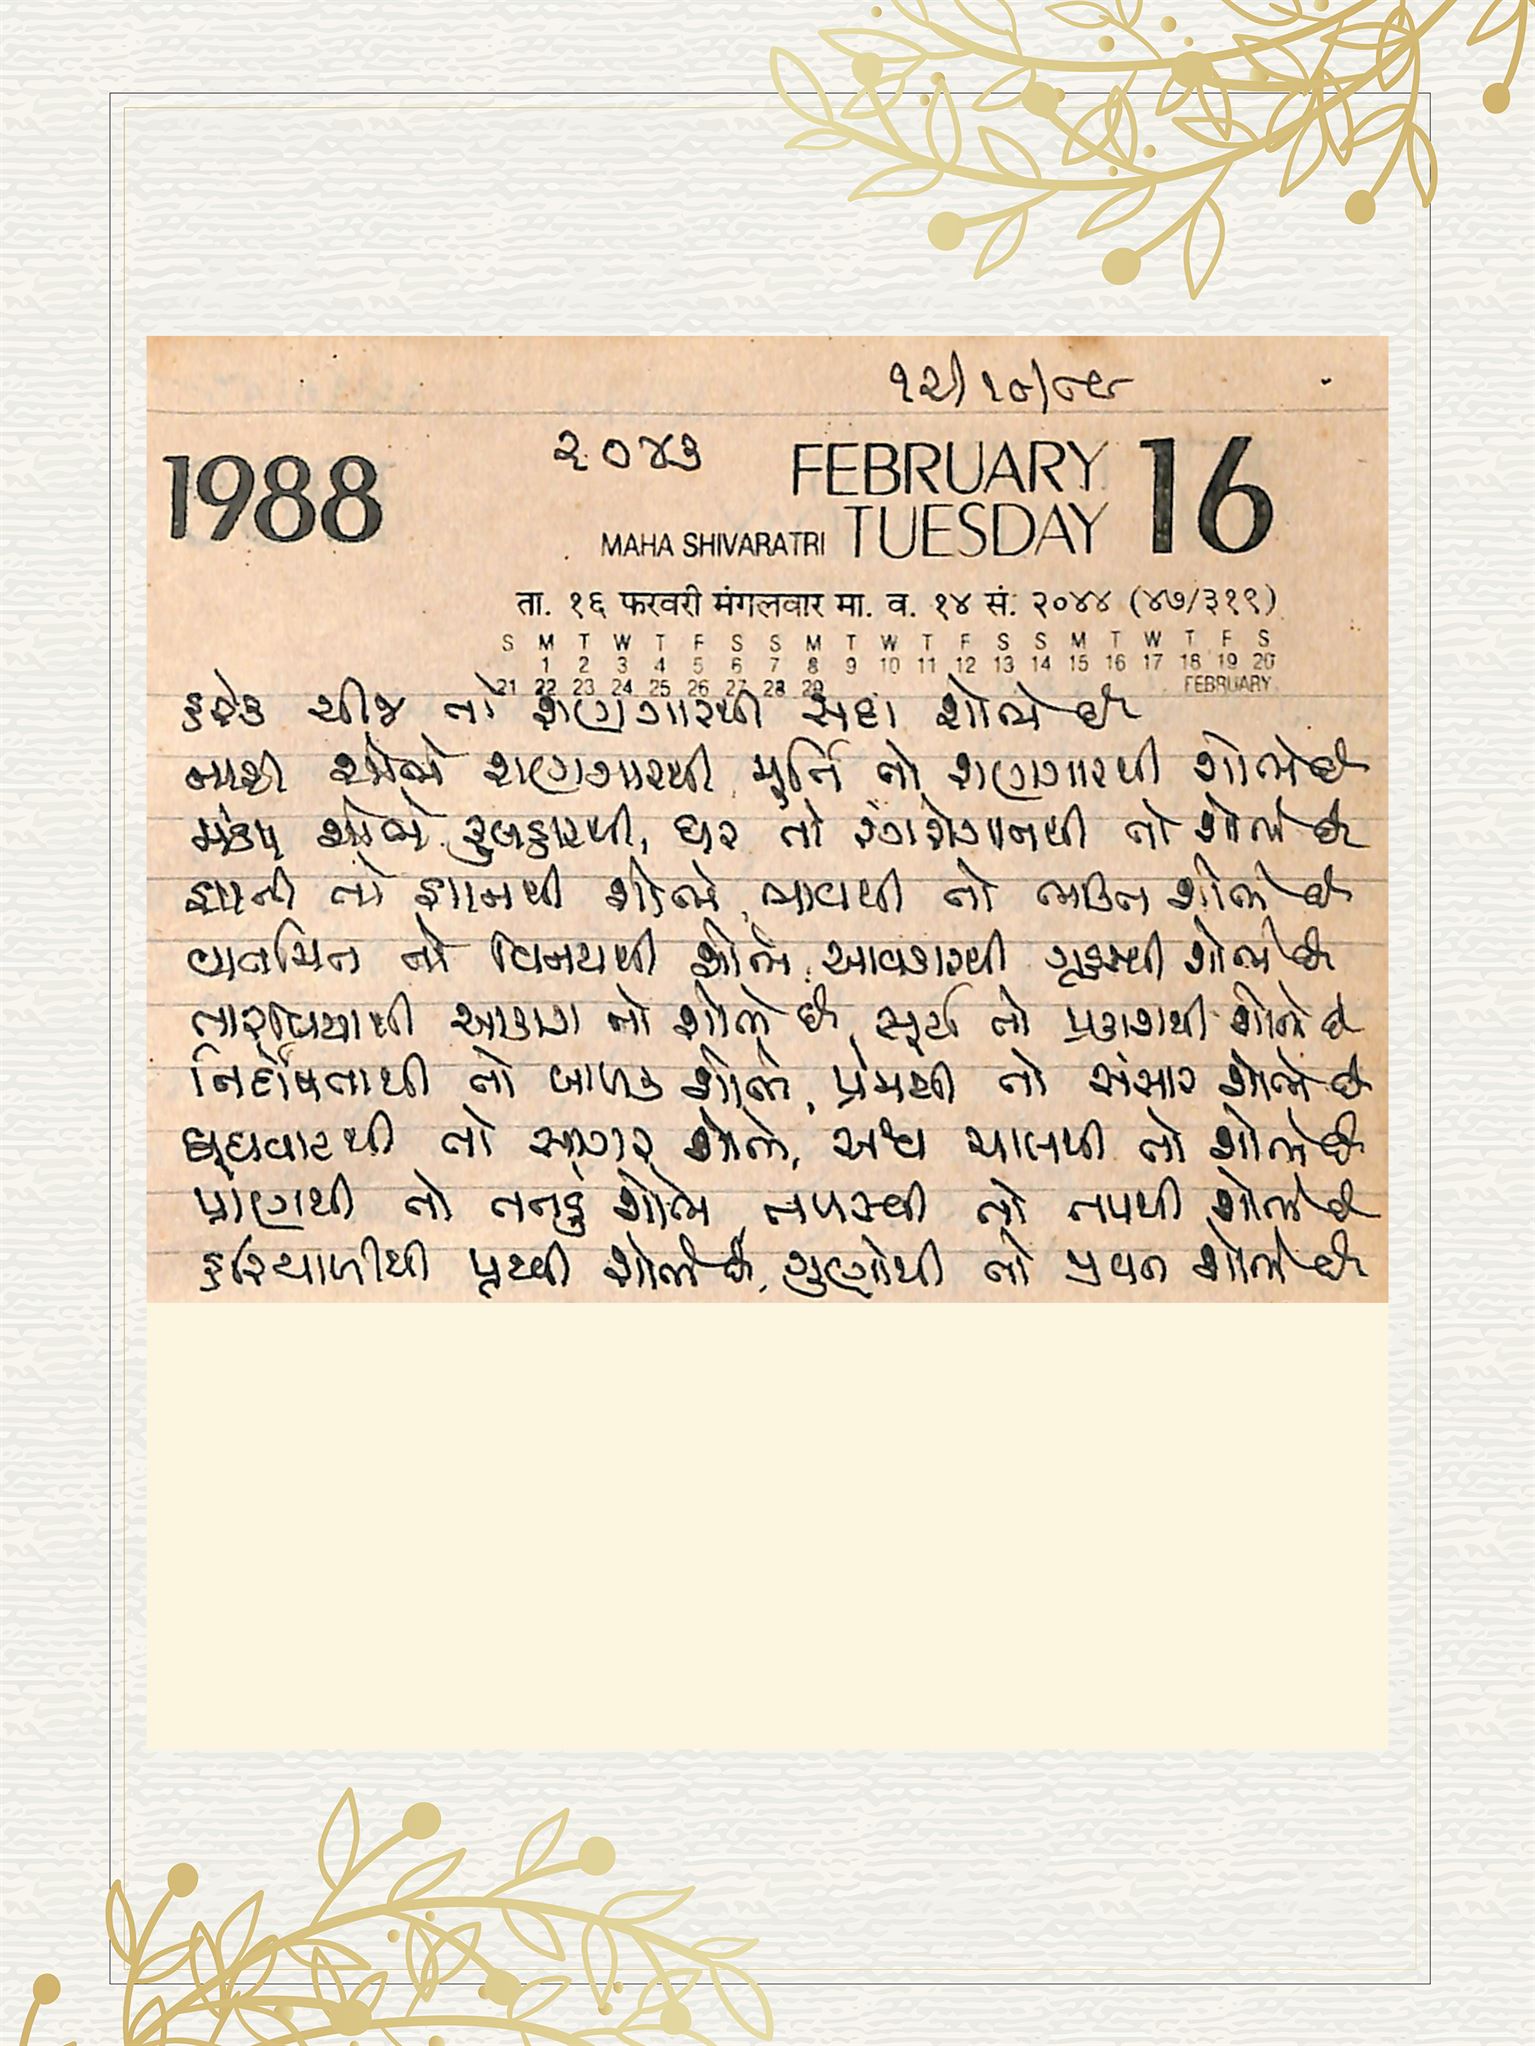 ૧૨/૧૦/૯૮
1988
૨૦૪૩
FEBRUARY 16
MAHA SHIVARATRI TUESDAY
ता. १६ फरवरी मंगलवार मा. व. १४ सं. २०४४ (४७/३१९)
S M T W T F S S M T W T F S S M T W T F S
1 2 3 4 5 6 7 8 9 10 11 12 13 14 15 16 17 18 19 20
21 22 23 24 25 26 27 28 29 FEBRUARY
હરેક ચીજ તો શણગારથી સદા શોભે છે
નારી શોભે શણગારથી, મૂર્તિ તો શણગારથી શોભે છે
મંડપ શોભે ફુલહારથી, ઘર તો રંગરોગાનથી તો શોભે છે
જ્ઞાની તો જ્ઞાનથી શોભે, ભાવથી તો ભક્તિ શોભે છે
વાતચિત તો વિનયથી શોભે, આવકારથી ગૃહસ્થી શોભે છે
તારલિયાથી આકાશ તો શોભે છે, સૂર્ય તો પ્રકાશથી શોભે છે
નિર્દોષતાથી તો બાળક શોભે, પ્રેમથી તો સંસાર શોભે છે
ઘૂઘવાટથી તો સાગર શોભે, અશ્વ ચાલથી તો શોભે છે
પ્રાણથી તો તનડું શોભે, તપસ્વી તો તપથી શોભે છે
હરિયાળીથી પૃથ્વી શોભે છે, ગુણોથી તો શોભે છે